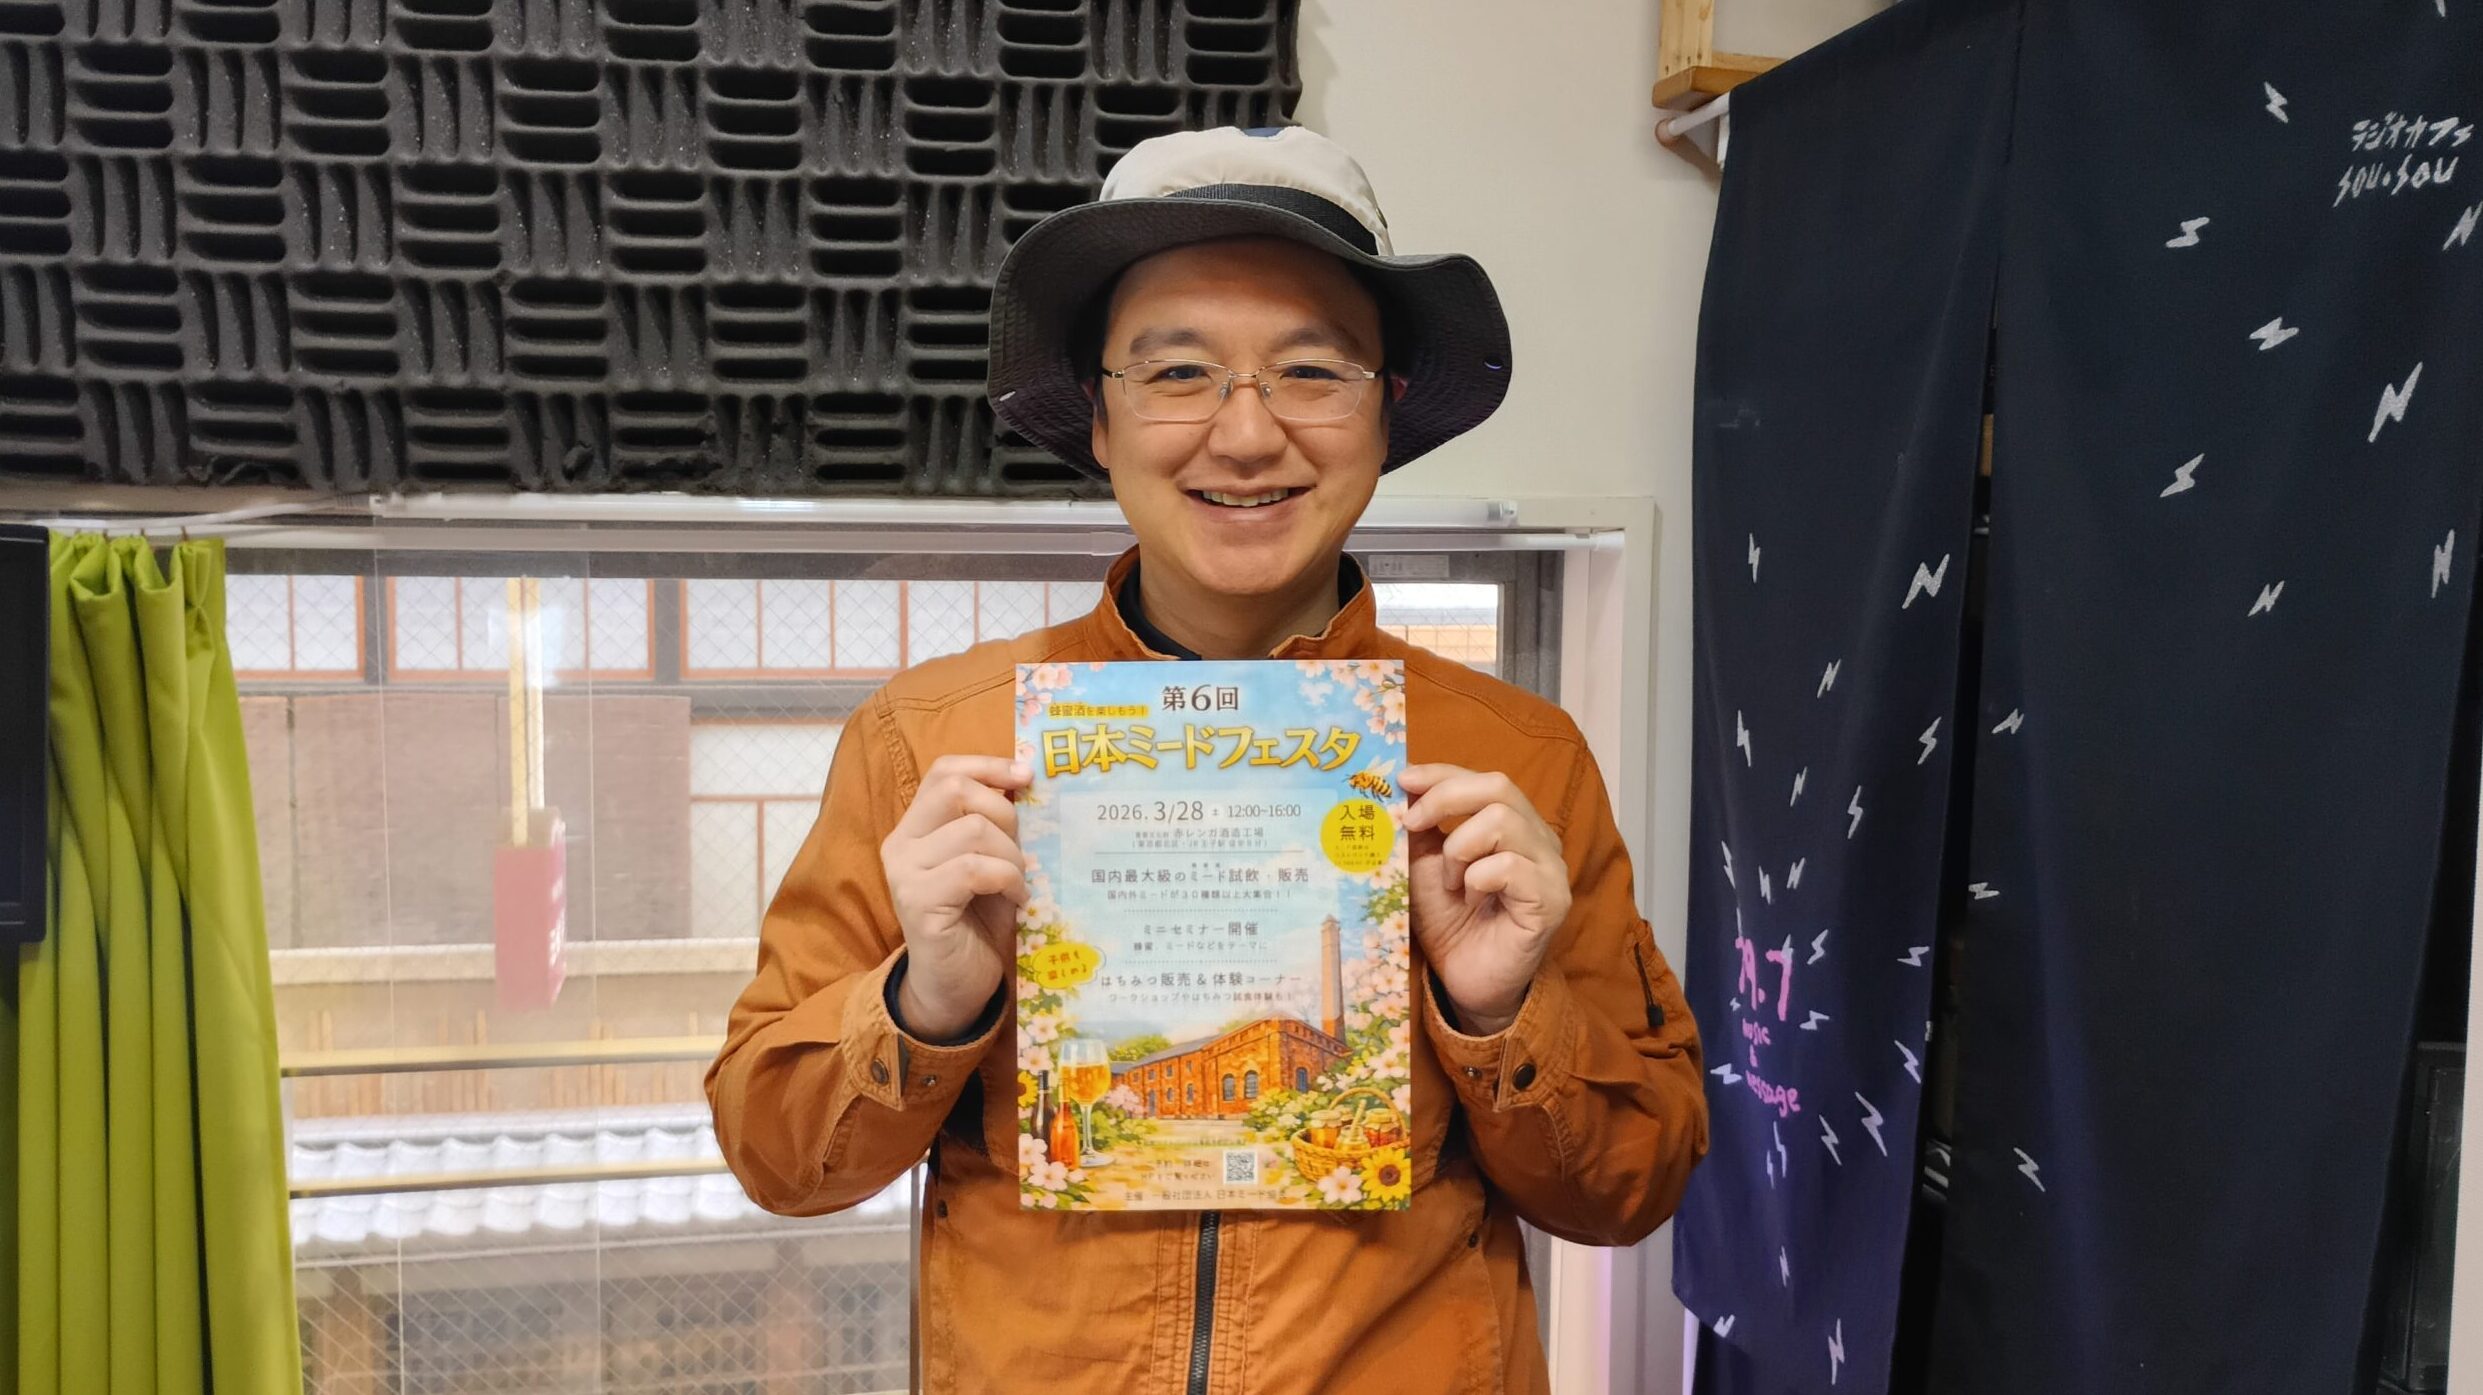 第6回
蜂蜜酒を楽しもう!
日本ミードフェスタ
2026. 3/28 土 12:00~16:00
重要文化財 赤レンガ酒造工場
入場
無料
国内最大級のミード試飲・販売
国内外ミードが30種類以上大集合!!
ミニセミナー開催
蜂蜜、ミードなどをテーマに
子供も
楽しめる
はちみつ販売&体験コーナー
ワークショップやはちみつ試食体験も!
HPをご覧ください
主催 一般社団法人 日本ミード協会
ラジオカフェ
SOU・SOU
79.7
music
&
message